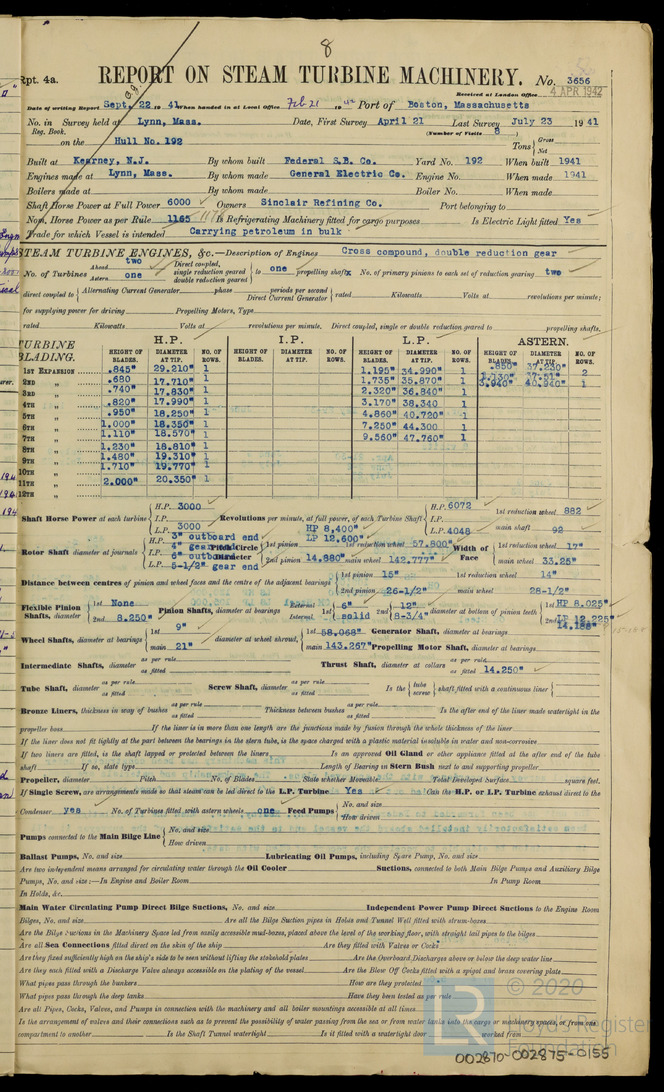 8
Rpt. 4a.
REPORT ON STEAM TURBINE MACHINERY. No. 3656
Received at London Office 4 APR 1942
Date of writing Report Sept. 22 1941. When handed in at Local Office Feb 21 1942 Port of Boston, Massachusetts
No. in Reg. Book. Survey held at Lynn, Mass. Date, First Survey April 21 Last Survey July 23 1941
(Number of Visits 8
on the Hull No. 192 Tons Gross Net
Built at Kearney, N.J. By whom built Federal S.B. Co. Yard No. 192 When built 1941
Engines made at Lynn, Mass. By whom made General Electric Co. Engine No. When made 1941
Boilers made at By whom made Boiler No. When made
Shaft Horse Power at Full Power 6000 Owners Sinclair Refining Co. Port belonging to
Nom. Horse Power as per Rule 1165 1178 Is Refrigerating Machinery fitted for cargo purposes Is Electric Light fitted Yes
Trade for which Vessel is intended Carrying petroleum in bulk
STEAM TURBINE ENGINES, &c.—Description of Engines Cross compound, double reduction gear
No. of Turbines Ahead two Astern one Direct coupled, single reduction geared double reduction geared to one propelling shafts. No. of primary pinions to each set of reduction gearing two
direct coupled to Alternating Current Generator phase periods per second Direct Current Generator rated Kilowatts Volts at revolutions per minute;
for supplying power for driving Propelling Motors, Type
rated Kilowatts Volts at revolutions per minute. Direct coupled, single or double reduction geared to propelling shafts.
TURBINE BLADING. H.P. I.P. L.P. ASTERN.
HEIGHT OF BLADES. DIAMETER AT TIP. NO. OF ROWS. HEIGHT OF BLADES. DIAMETER AT TIP. NO. OF ROWS. HEIGHT OF BLADES. DIAMETER AT TIP. NO. OF ROWS. HEIGHT OF BLADES. DIAMETER AT TIP. NO. OF ROWS.
1ST EXPANSION .845" 29.210" 1 1.195" 34.990" 1 .850" 37.230" 2
2ND " .680 17.710" 1 1.735" 35.870" 1 1.130" 37.51"
3RD " .740" 17.830" 1 2.320" 36.840" 1 3.940" 40.940" 1
4TH " .820" 17.990" 1 3.170" 38.340 1
5TH " .950" 18.250" 1 4.860" 40.720" 1
6TH " 1.000" 18.350" 1 7.250" 44.300 1
7TH " 1.110" 18.570" 1 9.560" 47.760" 1
8TH " 1.230" 18.810" 1
9TH " 1.480" 19.310" 1
10TH " 1.710" 19.770" 1
11TH " 2.000" 20.350" 1
12TH "
Shaft Horse Power at each turbine H.P. 3000 I.P. L.P. 3000 Revolutions per minute, at full power, of each Turbine Shaft H.P. 6072 I.P. L.P. 4048 1st reduction wheel 882 main shaft 92
Rotor Shaft diameter at journals H.P. 3" outboard end 4" gear end I.P. L.P. 6" outboard 5-1/2" gear end Pitch Circle Diameter 1st pinion HP 8,400" LP 12,600" 2nd pinion 14.880" 1st reduction wheel 57.800" main wheel 142.777" Width of Face 1st reduction wheel 17" main wheel 33.25"
Distance between centres of pinion and wheel faces and the centre of the adjacent bearings 1st pinion 15" 2nd pinion 26-1/2" 1st reduction wheel 14" main wheel 28-1/2"
Flexible Pinion Shafts, diameter 1st None 2nd 8.250" Pinion Shafts, diameter at bearings External 1st 6" 2nd 12" Internal 1st solid 2nd 8-3/4" diameter at bottom of pinion teeth 1st HP 8.025" LP 12.225" 2nd 14.188"
Wheel Shafts, diameter at bearings 1st 9" main 21" diameter at wheel shroud, 1st 58.068" main 143.267" Generator Shaft, diameter at bearings Propelling Motor Shaft, diameter at bearings
Intermediate Shafts, diameter as per rule as fitted Thrust Shaft, diameter at collars as per rule as fitted 14.250"
Tube Shaft, diameter as per rule as fitted Screw Shaft, diameter as per rule as fitted Is the tube screw shaft fitted with a continuous liner
Bronze Liners, thickness in way of bushes as per rule as fitted Thickness between bushes as per rule as fitted Is the after end of the liner made watertight in the
propeller boss If the liner is in more than one length are the junctions made by fusion through the whole thickness of the liner
If the liner does not fit tightly at the part between the bearings in the stern tube, is the space charged with a plastic material insoluble in water and non-corrosive
If two liners are fitted, is the shaft lapped or protected between the liners Is an approved Oil Gland or other appliance fitted at the after end of the tube
shaft If so, state type Length of Bearing in Stern Bush next to and supporting propeller
Propeller, diameter Pitch No. of Blades State whether Moveable Total Developed Surface square feet.
If Single Screw, are arrangements made so that steam can be led direct to the L.P. Turbine Yes Can the H.P. or I.P. Turbine exhaust direct to the
Condenser yes No. of Turbines fitted with astern wheels one Feed Pumps No. and size How driven
Pumps connected to the Main Bilge Line No. and size How driven
Ballast Pumps, No. and size Lubricating Oil Pumps, including Spare Pump, No. and size
Are two independent means arranged for circulating water through the Oil Cooler Suctions, connected to both Main Bilge Pumps and Auxiliary Bilge
Pumps, No. and size:—In Engine and Boiler Room In Pump Room
In Holds, &c.
Main Water Circulating Pump Direct Bilge Suctions, No. and size Independent Power Pump Direct Suctions to the Engine Room
Bilges, No. and size Are all the Bilge Suction pipes in Holds and Tunnel Well fitted with strum-boxes
Are the Bilge Suctions in the Machinery Space led from easily accessible mud-boxes, placed above the level of the working floor, with straight tail pipes to the bilges
Are all Sea Connections fitted direct on the skin of the ship Are they fitted with Valves or Cocks
Are they fixed sufficiently high on the ship's side to be seen without lifting the stokehold plates Are the Overboard Discharges above or below the deep water line
Are they each fitted with a Discharge Valve always accessible on the plating of the vessel Are the Blow Off Cocks fitted with a spigot and brass covering plate
What pipes pass through the bunkers How are they protected
What pipes pass through the deep tanks Have they been tested as per rule
Are all Pipes, Cocks, Valves, and Pumps in connection with the machinery and all boiler mountings accessible at all times
Is the arrangement of valves and their connections such as to prevent the possibility of water passing from the sea or from water tanks into the cargo or machinery spaces, or from one
compartment to another Is the Shaft Tunnel watertight Is it fitted with a watertight door worked from
LR © 2020 Lloyd's Register Foundation
002870-002875-0155